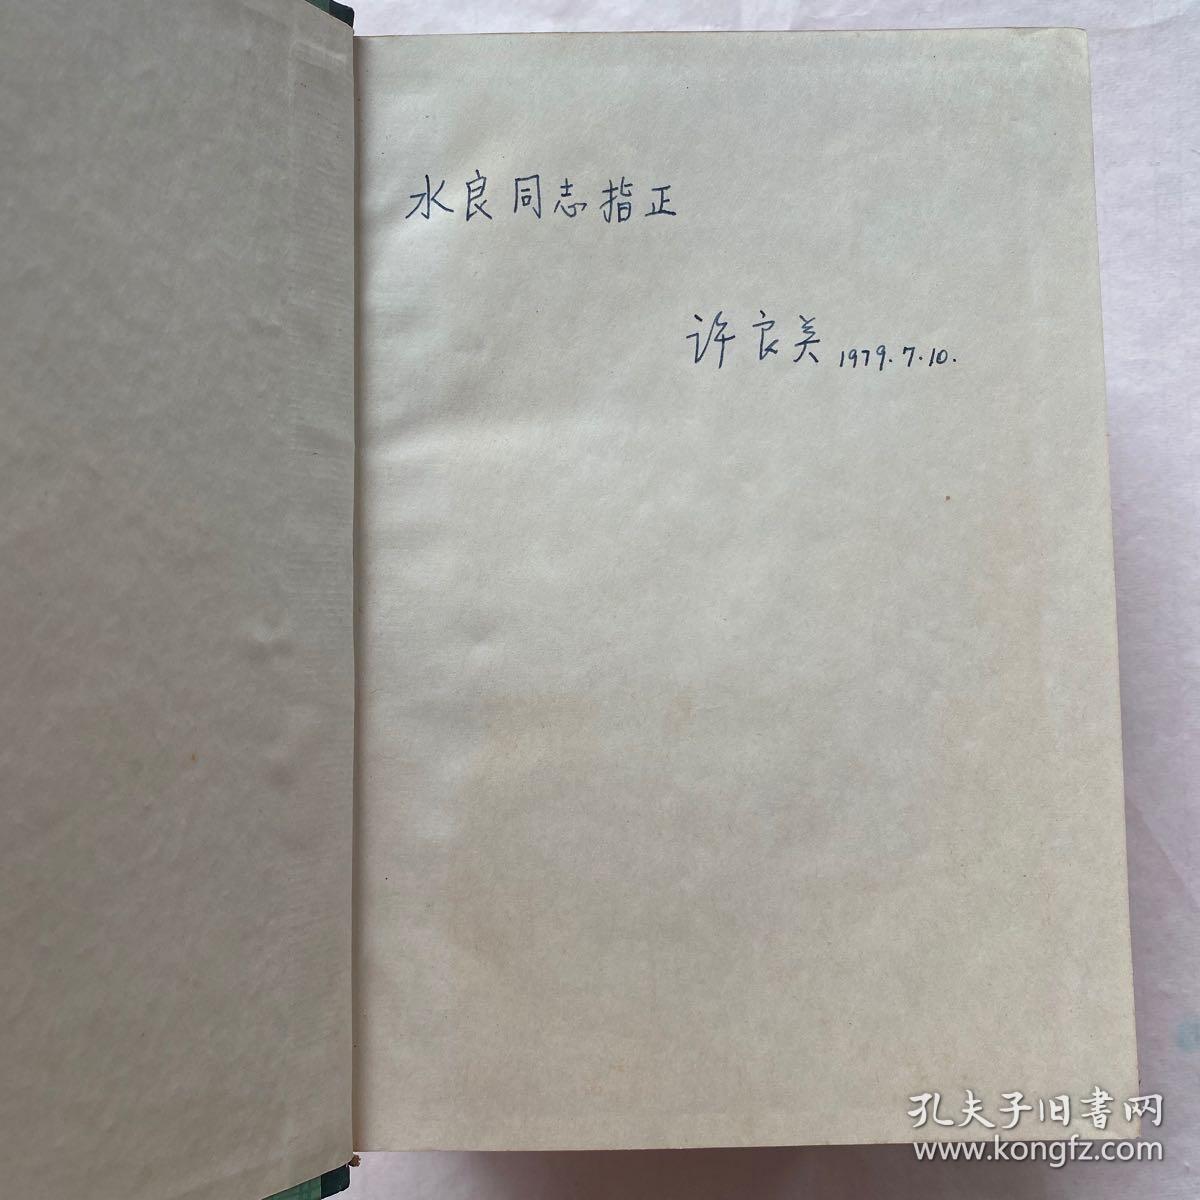 水良同志指正
许良英 1979.7.10.
孔夫子旧书网
www.kongfz.com